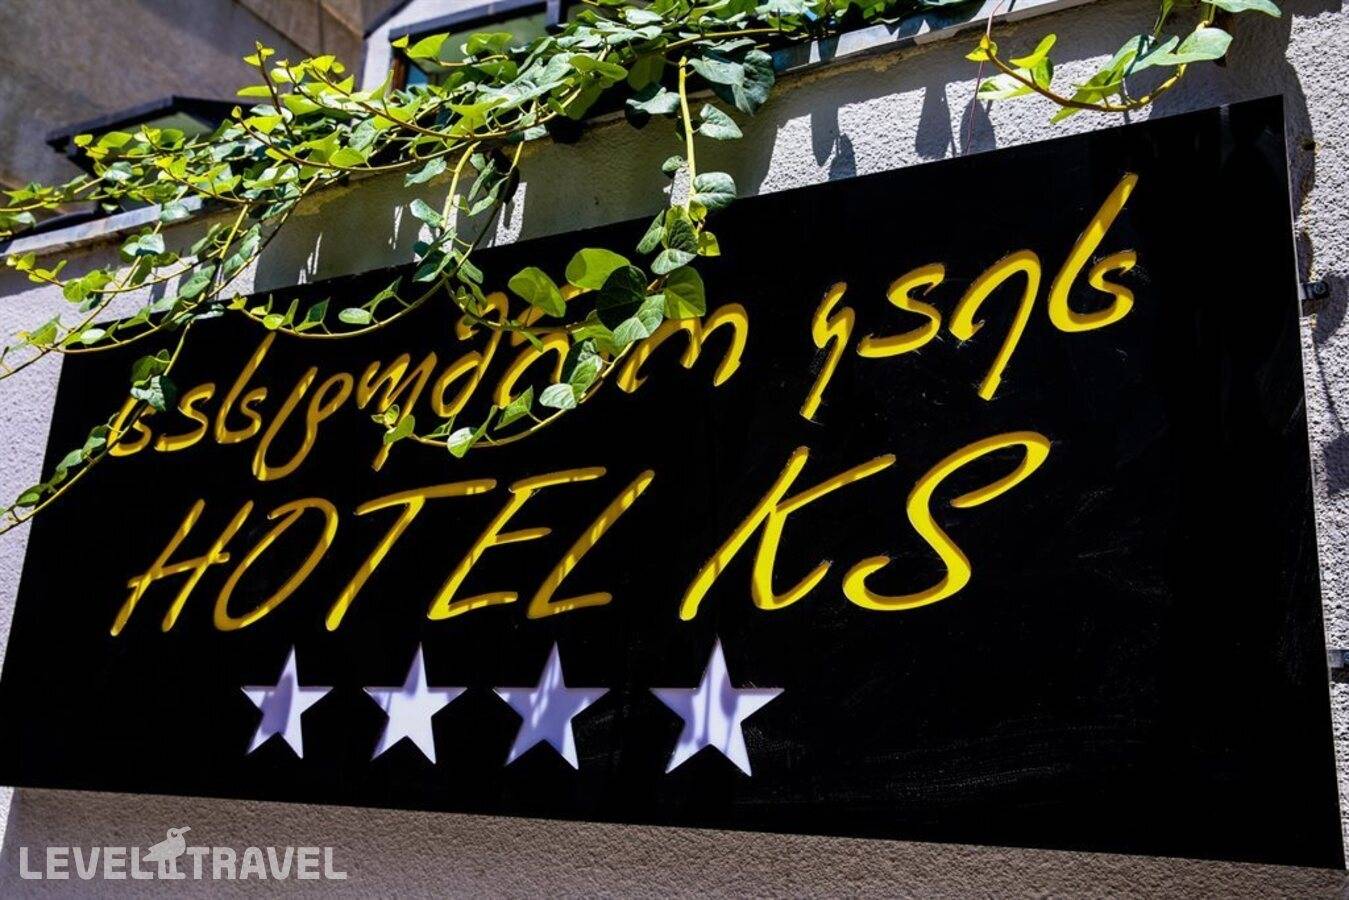 სასტუმრო კაეს
HOTEL KS
LEVEL TRAVEL